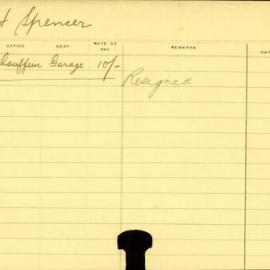 Spencer
OFFICE DEPT. RATE OF PAY REMARKS DAT
hauffeur Garage 10/-
Resigned